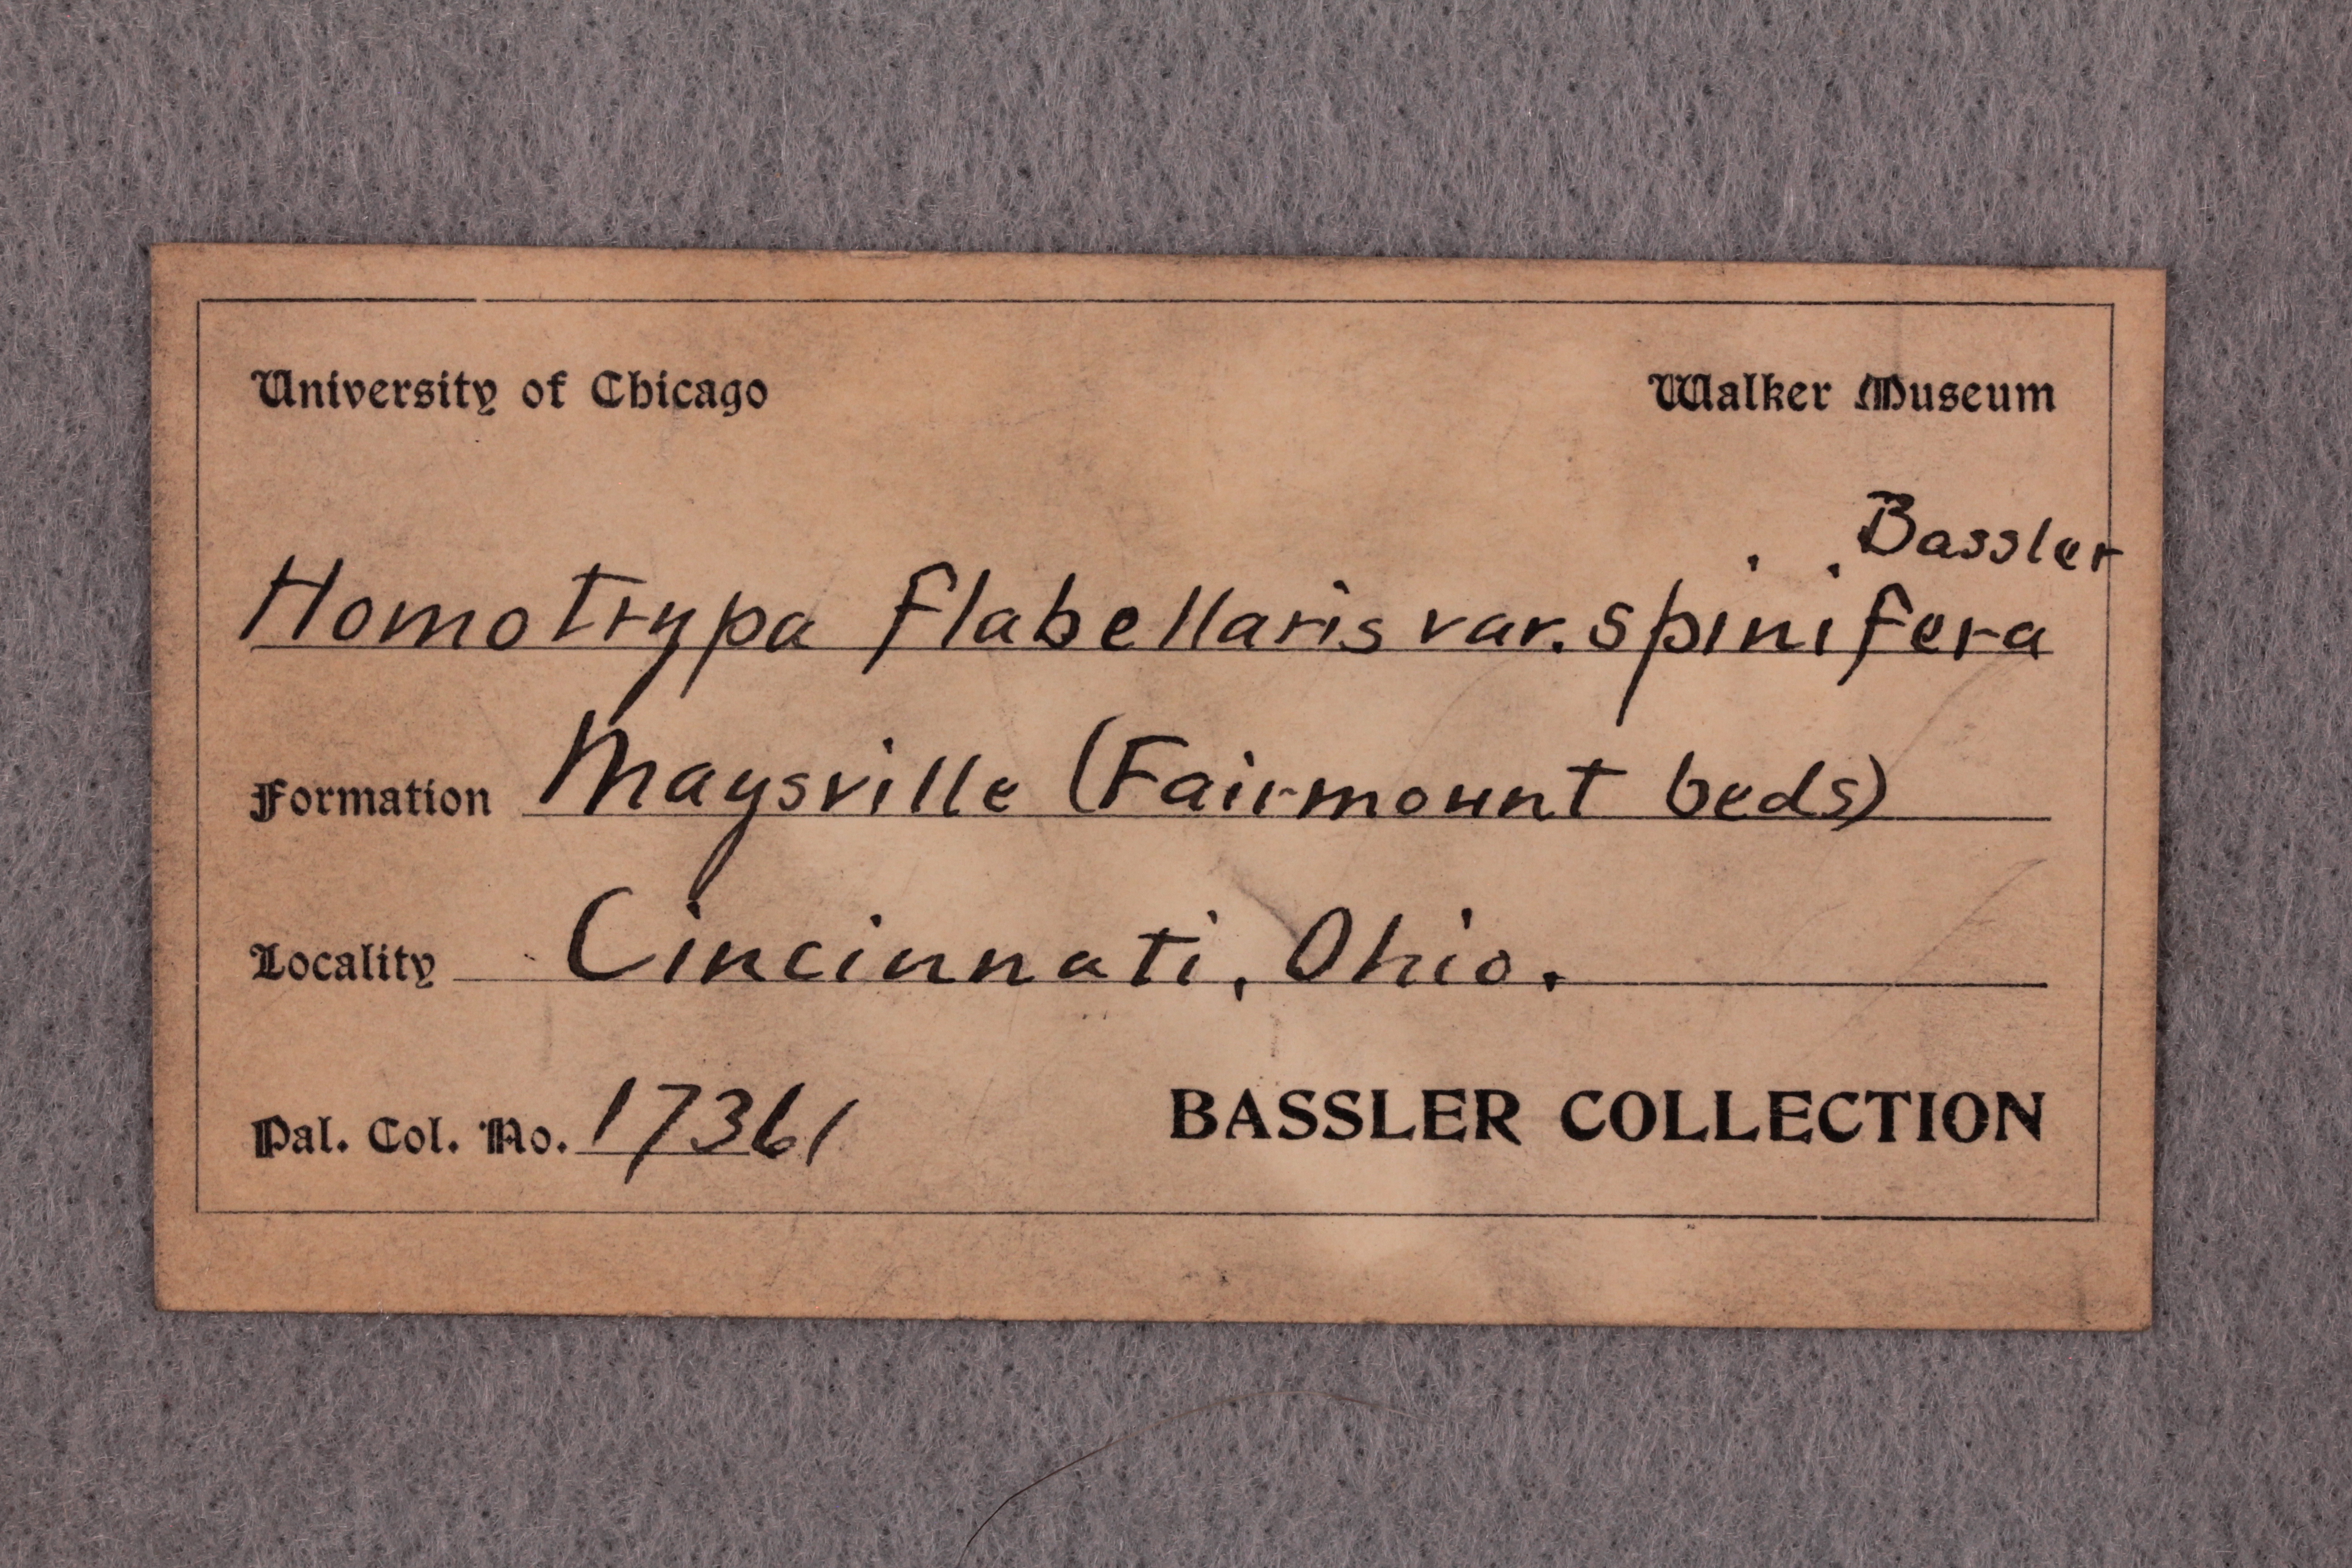 University of Chicago Walker Museum
Bassler
Homotrypa flabellaris var. spinifera
Formation Maysville (Fairmount beds)
Locality Cincinnati, Ohio.
Pal. Col. No. 17361 BASSLER COLLECTION